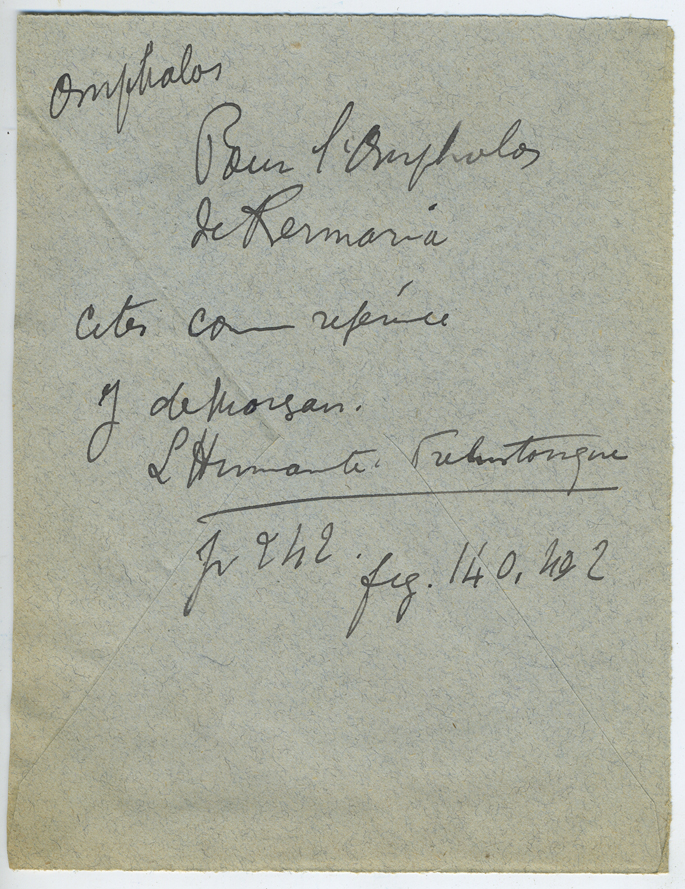 Omphalos
Pour l'Omphalos
de Kermaria
Citer comme référence
J de Morgan.
L'Humanité Préhistorique
p 242. fig. 140, no 2